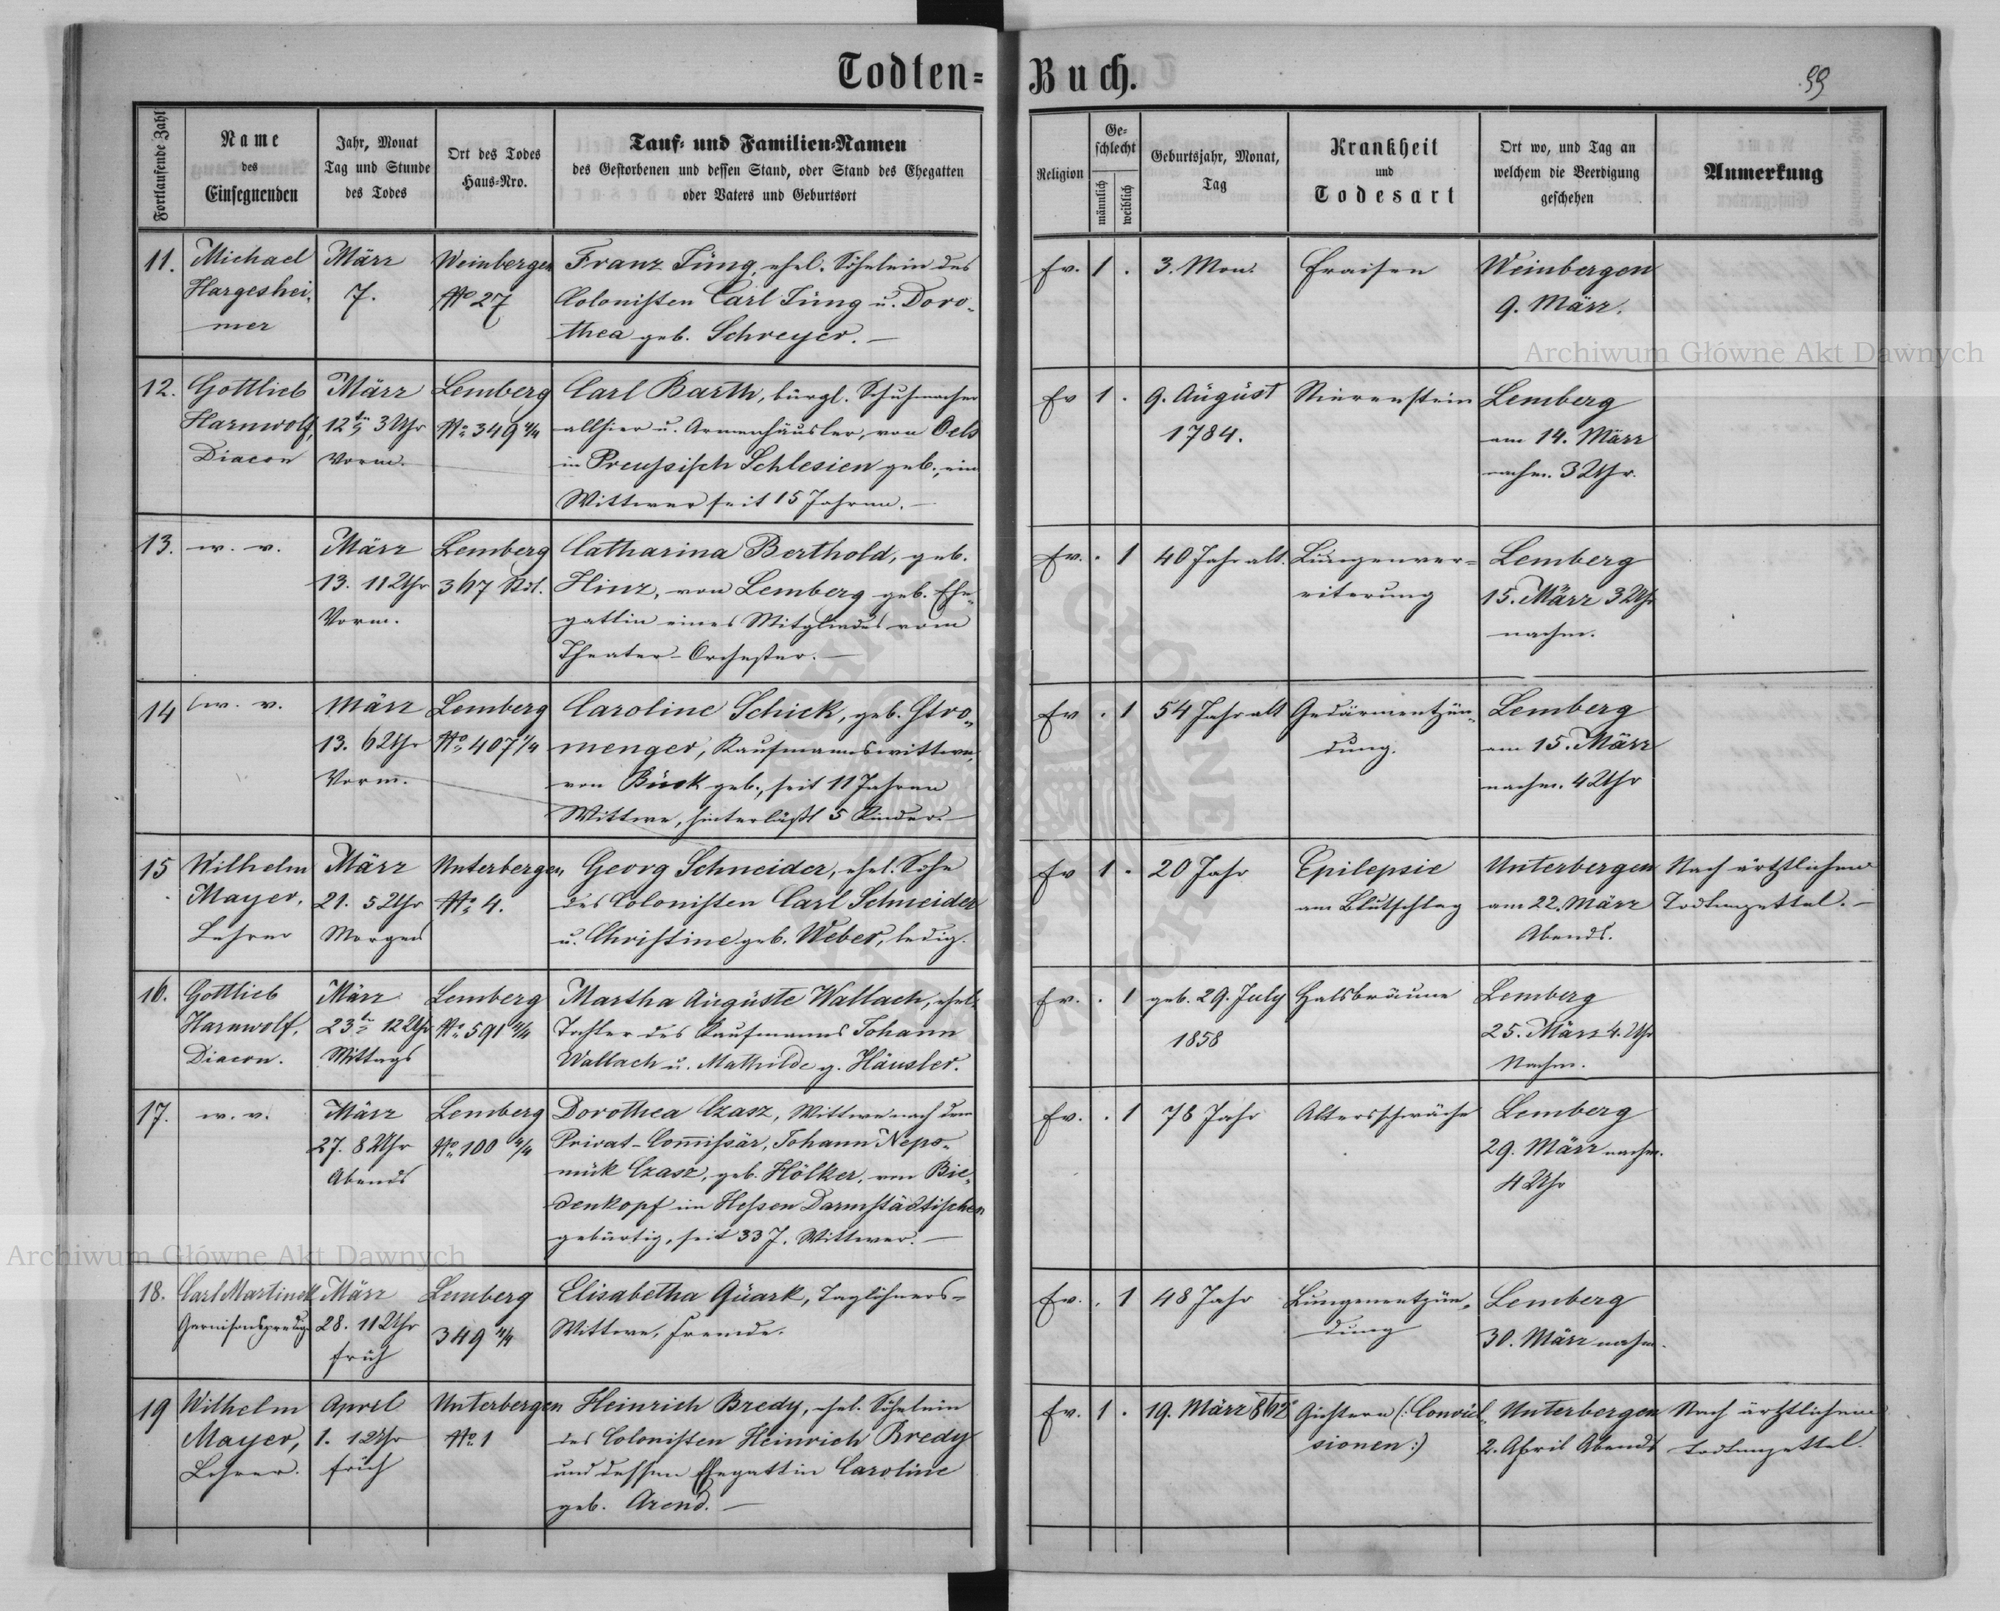 Todten-Buch.
99
Fortlaufende Zahl
Name
des
Einsegnenden
Jahr, Monat
Tag und Stunde
des Todes
Ort des Todes
Haus-Nro.
Tauf- und Familien-Namen
des Gestorbenen und dessen Stand, oder Stand des Ehegatten
oder Vaters und Geburtsort
Religion
Ge-
schlecht
männlich
weiblich
Geburtsjahr, Monat,
Tag
Krankheit
und
Todesart
Ort wo, und Tag an
welchem die Beerdigung
geschehen
Anmerkung
11.
Michael
Hargeshei-
mer
März
7.
Weinbergen
No 27
Franz Jüng, ehel. Söhnlein des
Colonisten Carl Jüng u. Doro-
thea geb. Schreyer. —
Ev. 1 .
3. Mon.
Fraisen
Weinbergen
9. März.
12.
Gottlieb
Harnwolf,
Diacon
März
12tn 3 Uhr
Vorm.
Lemberg
No 349 4/4
Carl Barth, bürgl. Schuhmacher
allhier u. Armenhäusler, von Oels
in Preussisch Schlesien geb., ein
Wittwer seit 15 Jahren. —
Ev 1 .
9. August
1784.
Nierenstein
Lemberg
am 14. März
nachm. 3 Uhr.
13.
w. v.
März
13. 11 Uhr
Vorm.
Lemberg
367 Stdt.
Catharina Berthold, geb.
Hinz, von Lemberg geb. Ehe-
gattin eines Mitgliedes vom
Theater-Orchester. —
Ev. . 1
40 Jahr alt.
Lungenver-
eiterung
Lemberg
15. März 3 Uhr
nachm.
14
w. v.
März
13. 6 Uhr
Vorm.
Lemberg
No 407 1/4
Caroline Schick, geb. Stro-
menger, Kaufmannswittwe,
von Busk geb., seit 11 Jahren
Wittwe, hinterläßt 5 Kinder. —
Ev . 1
54 Jahr alt
Gedärmentzün-
dung.
Lemberg
am 15. März
nachm. 4 Uhr
15
Wilhelm
Mayer,
Lehrer
März
21. 5 Uhr
Morgens
Unterbergen
No 4.
Georg Schneider, ehel. Sohn
des Colonisten Carl Schneider
u. Christine geb. Weber, ledig.
Ev 1 .
20 Jahr
Epilepsie
am Blutschlag
Unterbergen
am 22. März
Abends.
Nach ärztlichem
Todtenzettel. —
16.
Gottlieb
Harnwolf,
Diacon.
März
23t 12 Uhr
Mittags
Lemberg
No 591 4/4
Martha Auguste Wallach, ehel.
Tochter des Kaufmanns Johann
Wallach u. Mathilde g. Häusler.
Ev. . 1
geb. 29. July
1858
Halsbräune
Lemberg
25. März 4. Uhr
Nachm.
17.
w. v.
März
27. 8 Uhr
Abends
Lemberg
No 100 4/4
Dorothea Czasz, Wittwe nach dem
Privat-Commissär, Johann Nepo-
muk Czasz, geb. Hölker, von Bie-
denkopf im Hessen Darmstädtischen
gebürtig, seit 33 J. Wittwer. —
Ev. . 1
78 Jahr
Altersschwäche
Lemberg
29. März nachm.
4 Uhr
18.
Carl Martinek
Garnisonspredig.
März
28. 11 Uhr
früh
Lemberg
349 4/4
Elisabetha Quark, Taglöhners-
Wittwe, Fremde.
Ev. . 1
48 Jahr
Lungenentzün-
dung
Lemberg
30. März nachm.
19
Wilhelm
Mayer,
Lehrer.
April
1. 1 Uhr
früh
Unterbergen
No 1
Heinrich Bredy, ehel. Söhnlein
des Colonisten Heinrich Bredy
und dessen Ehegattin Caroline
geb. Arend. —
Ev. 1 .
19. März 862
(: Convul-
sionen :)
Unterbergen
2. April Abends
Nach ärztlichem
Todtenzettel.
Archiwum Główne Akt Dawnych
Archiwum Główne Akt Dawnych